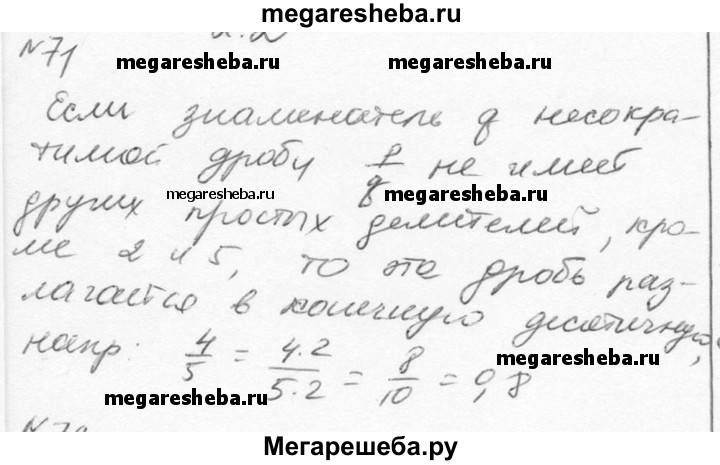 megaresheba.ru
N71
megaresheba.ru megaresheba.ru
Если знаменатель q несокра-
тимой дробу p/q не имеет
megaresheba.ru
других простых делителей, кро-
ме 2 и 5, то эта дробь раз-
лагается в конечную десятичную,
напр: 4/5 = 4·2/5·2 = 8/10 = 0,8
megaresheba.ru
megaresheba.ru
Мегарешеба.ру